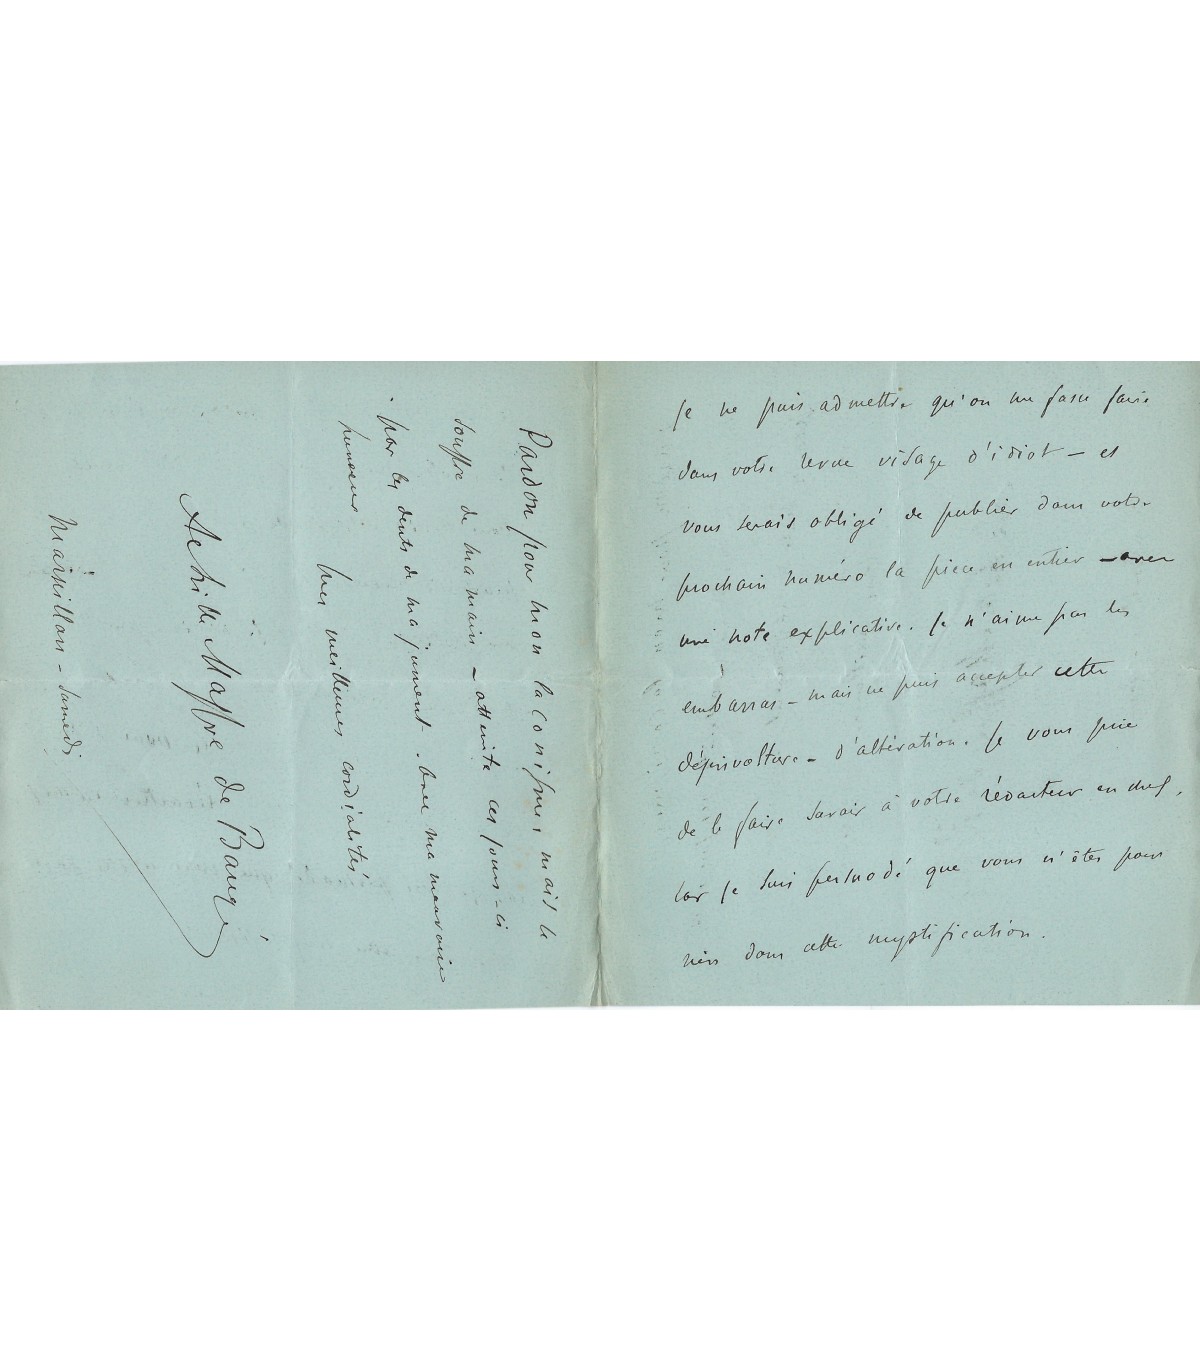 Je ne puis admettre qu'on me fasse faire
dans votre revue visage d'idiot — et
vous serais obligé de publier dans votre
prochain numéro la pièce en entier — avec
une note explicative. Je n'aime pas les
embarras — mais ne puis accepter cette
désinvolture — d'altération. Je vous prie
de le faire savoir à votre rédacteur en chef,
car je suis persuadé que vous n'êtes pour
rien dans cette mystification.
Pardon pour mon laconisme, mais je
souffre de ma main — atteinte ces jours-ci
par les dents de ma jument — avec ma mauvaise
humeur
mes meilleures cordialités
Achille Maffre de Baugé
Marseillan — Samedi